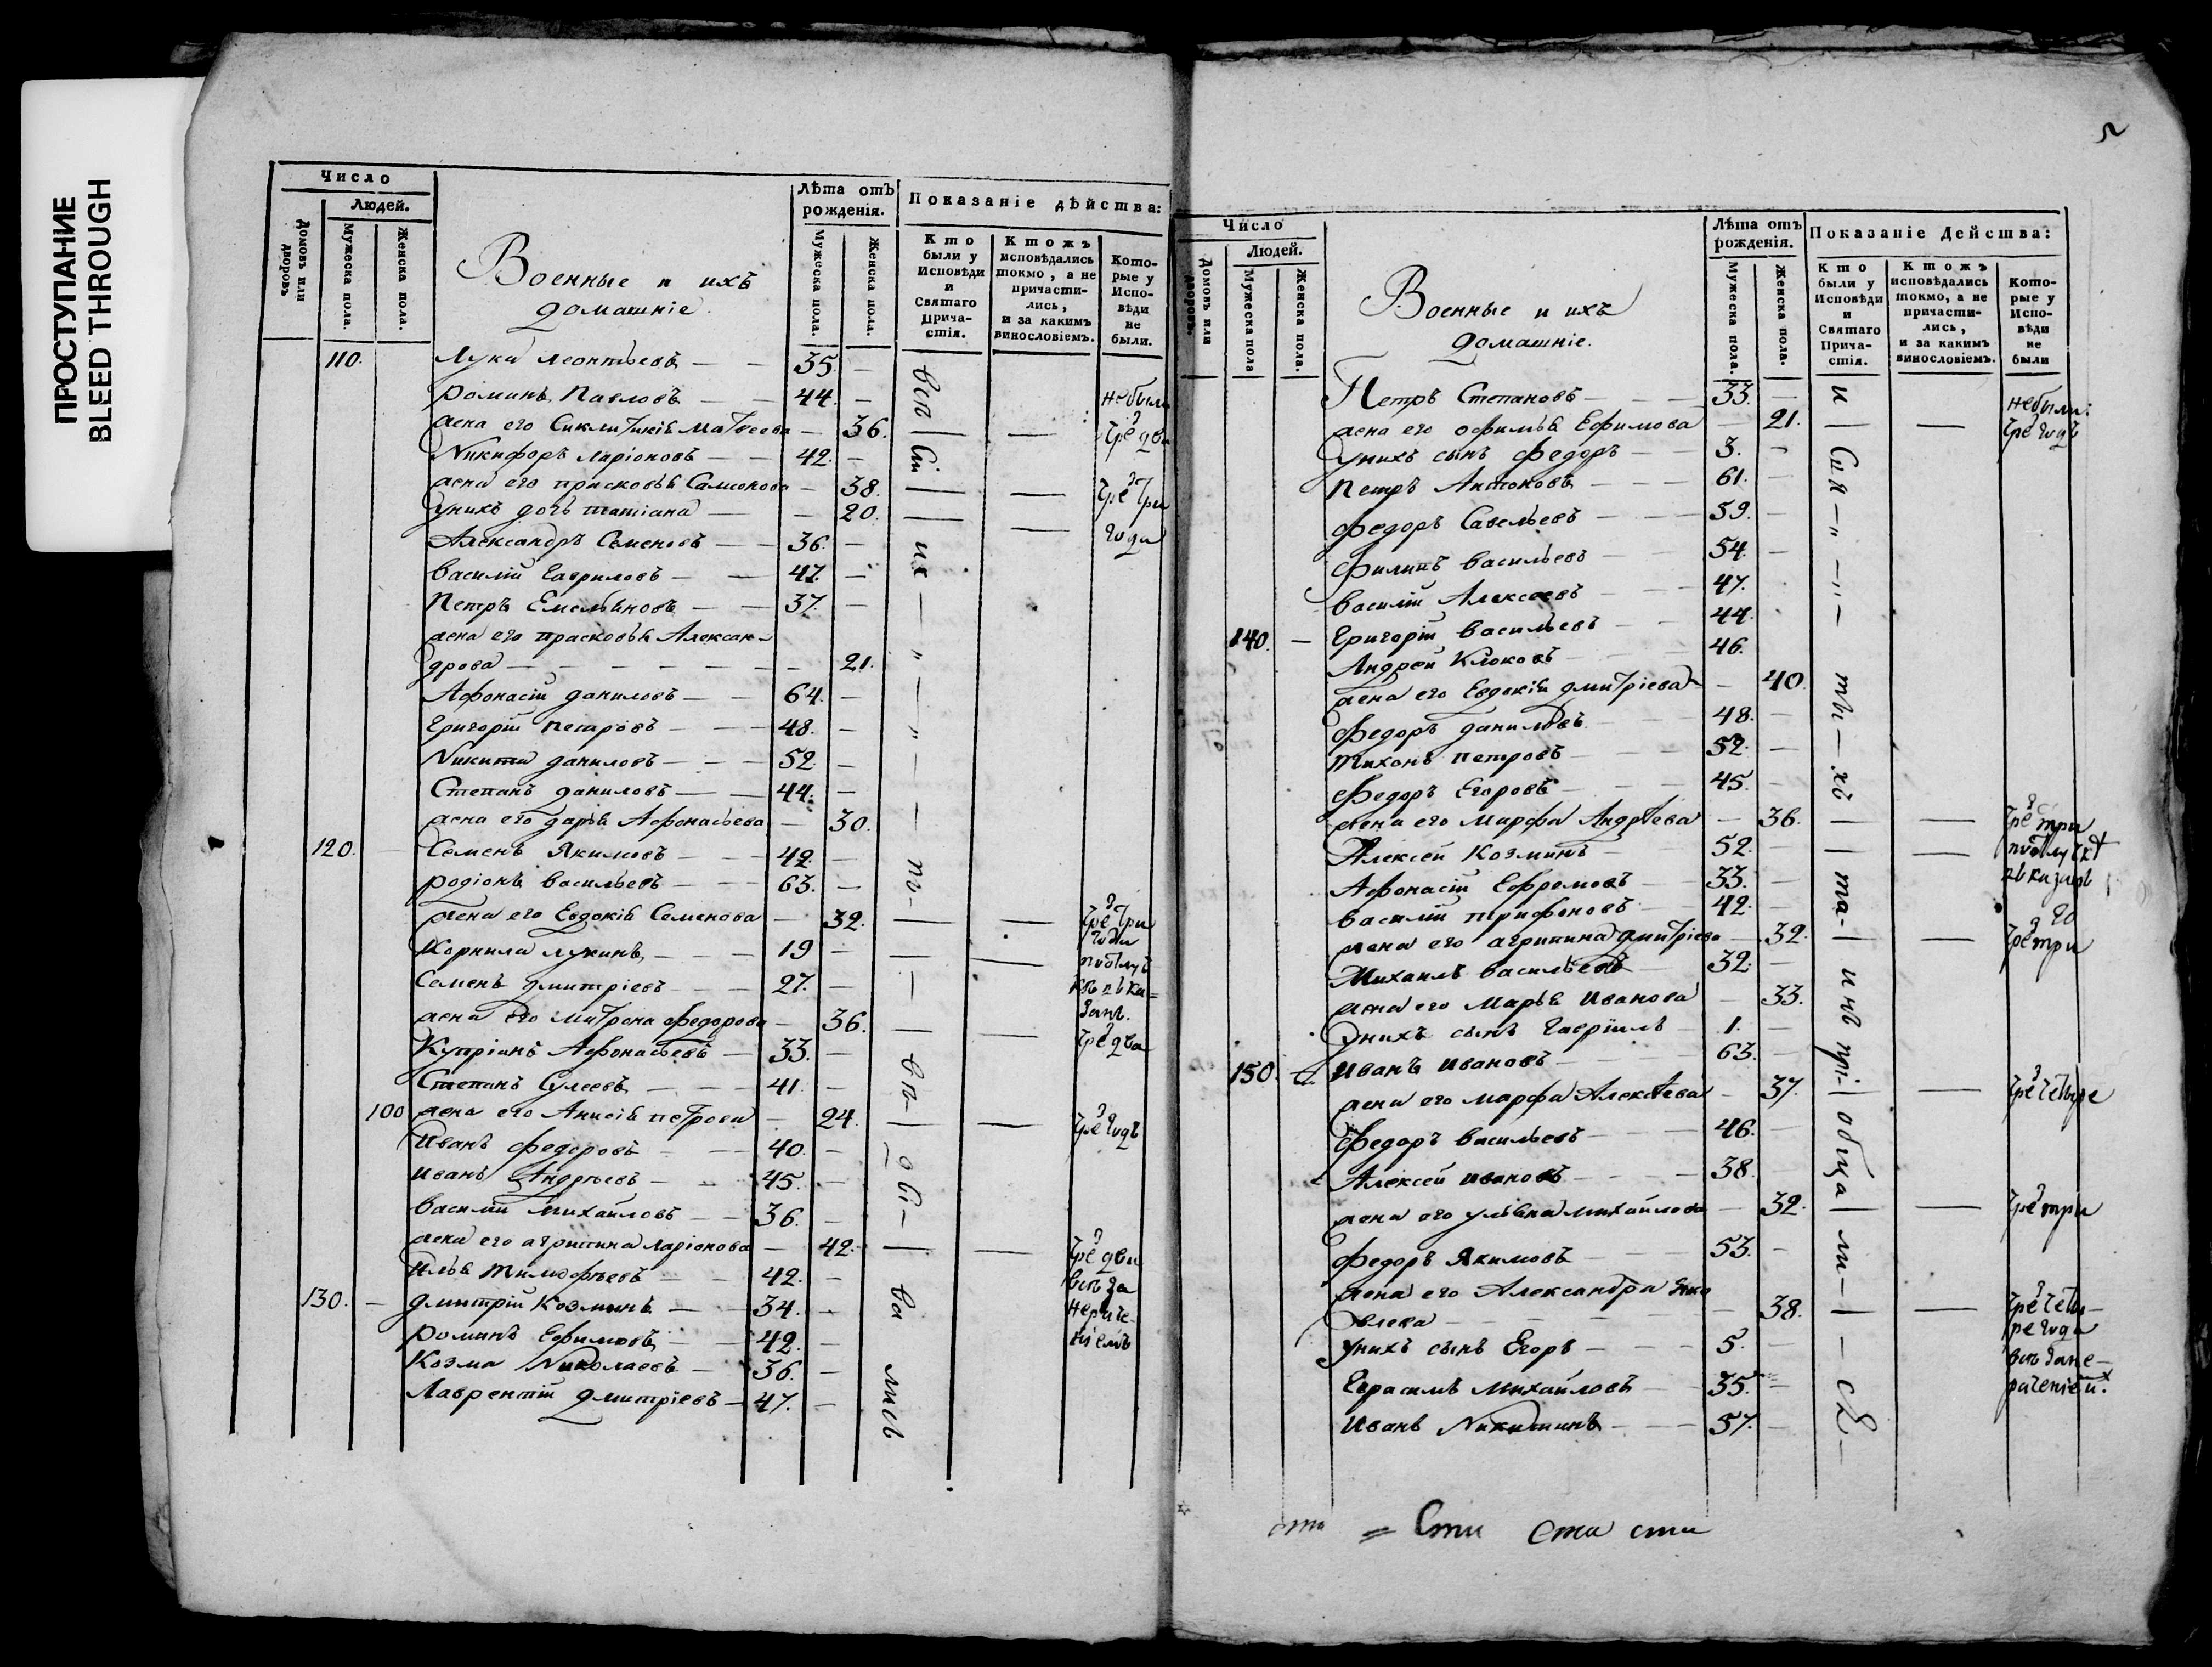 ПРОСТУПАНИЕ
BLEED THROUGH
Число
Людей.
Домовъ или дворовъ
Мужеска пола.
Женска пола.
Военные и ихъ
домашніе.
Лѣта отъ
рожденія.
Мужеска пола.
Женска пола.
Показаніе дѣйства:
Кто
были у
Исповѣди
и
Святаго
Прича-
стія.
Ктожъ
исповѣдались
токмо, а не
причасти-
лись,
и за какимъ
винословіемъ.
Кото-
рые у
Испо-
вѣди
не
были.
110. Лука Леонтьевъ — — 35. —
романъ Павловъ — — 44. — небыли
жена его Матвеева — 36. — чрез два
Никифоръ Ларіоновъ — — 42. —
жена его прасковья Самсонова — 38. — чрез три
уних дочь татіана — — 20. — года
Александръ Семеновъ — — 36. —
Василій Гавриловъ — — 47. —
Петръ Емельяновъ — — 37. —
жена его прасковья Алексан-
дрова — — — — — — — 21.
Афонасій даниловъ — — 64. —
Григорій петровъ — — 48. —
Никита даниловъ — — — 52. —
Степанъ даниловъ — — 44. —
жена его дарья Афонасьева — 30.
120. Семенъ Якимовъ — — 42. —
родіонъ васильевъ — — 63. —
жена его Евдокія Семенова — 32. — чрез три
года
Корнила лукинъ — — — 19 —
Семенъ дмитріевъ — — — 27. —
жена его матрона федорова — 36. — чрез два
Купріянъ Афонасьевъ — 33. —
Степанъ — — — 41. —
100 жена его Анисія петрова — 24. — чрез годъ
Иванъ федоровъ — — 40. —
иванъ Андреевъ — — 45. —
василій михайловъ — — 36. —
жена его агрипина ларіонова — 42. — чрез два
Илья тимофеевъ — — 42. —
130. — дмитрій козминъ — — 34. —
романъ Ефимовъ — — 42. —
Козма Николаевъ — 36. —
Лаврентій дмитріевъ — 47. —
5
Число
Людей.
Домовъ или дворовъ.
Мужеска пола
Женска пола.
Военные и ихъ
домашніе.
Лѣта отъ
рожденія.
Мужеска пола.
Женска пола.
Показаніе Действа:
Кто
были у
Исповѣди
и
Святаго
Прича-
стія.
Ктожъ
исповѣдались
токмо, а не
причасти-
лись,
и за какимъ
винословіемъ.
Кото-
рые у
Испо-
вѣди
не
были
Петръ Степановъ — — — 33. — небыли:
жена его офимья Ефимова — 21. — чрез годъ
уних сынъ федоръ — — 3. —
Петръ Антоновъ — — — 61. —
федоръ Савельевъ — — — 59. —
филипъ васильевъ — — 54. —
василій Алексеевъ — — 47.
140. — Григорій васильевъ — — 44.
Андрей Клоковъ — — — 46.
жена его Евдокія дмитріева — 40.
федоръ даниловъ — — — 48. —
тихонъ петровъ — — — 52. —
федоръ Егоровъ — — — 45. —
жена его марфа Андреева — 36. — чрез три
Алексей Козминъ — 52. —
Афонасій Ефремовъ — 33. —
василій трифоновъ — 42. —
жена его агрипина дмитріева — 32. — чрез три
Михаилъ васильевъ — 32. —
жена его Марья Иванова — 33.
уних сынъ гавріилъ — 1. —
150. Иванъ ивановъ — — 63. —
жена его марфа Алексеева — 37. — чрез четыре
федоръ васильевъ — — — 46. —
Алексей ивановъ — — — 38. —
жена его ульяна михайлова — 32. — чрез три
федоръ Якимовъ — — — 53. —
жена его Александра Яко
влева — — — — — 38. — чрез четы-
ре года
уних сынъ Егоръ — — — 5. —
Герасимъ михайловъ — — 35. —
иванъ Никитинъ — — — 57. —
= Сти Сти сти